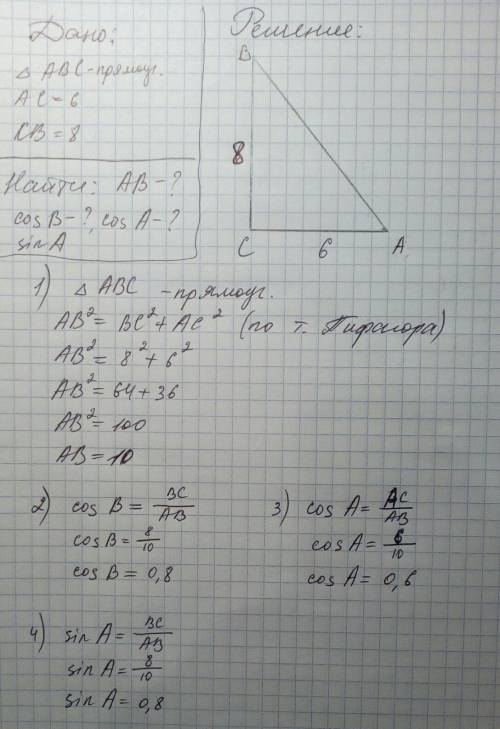 Дано:
△ ABC - прямоуг.
AC = 6
CB = 8
Найти: AB - ?
cos B - ?, cos A - ?
sin A
Решение:
B
8
C 6 A
1) △ ABC - прямоуг.
AB² = BC² + AC² (по т. Пифагора)
AB² = 8² + 6²
AB² = 64 + 36
AB² = 100
AB = 10
2) cos B = BC/AB
cos B = 8/10
cos B = 0,8
3) cos A = AC/AB
cos A = 6/10
cos A = 0,6
4) sin A = BC/AB
sin A = 8/10
sin A = 0,8